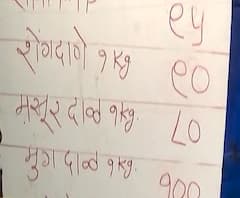 ९५
शेंगदाणे १ kg ९०
मसूर दाळ १kg. ८०
मुग दाळ १kg. १००